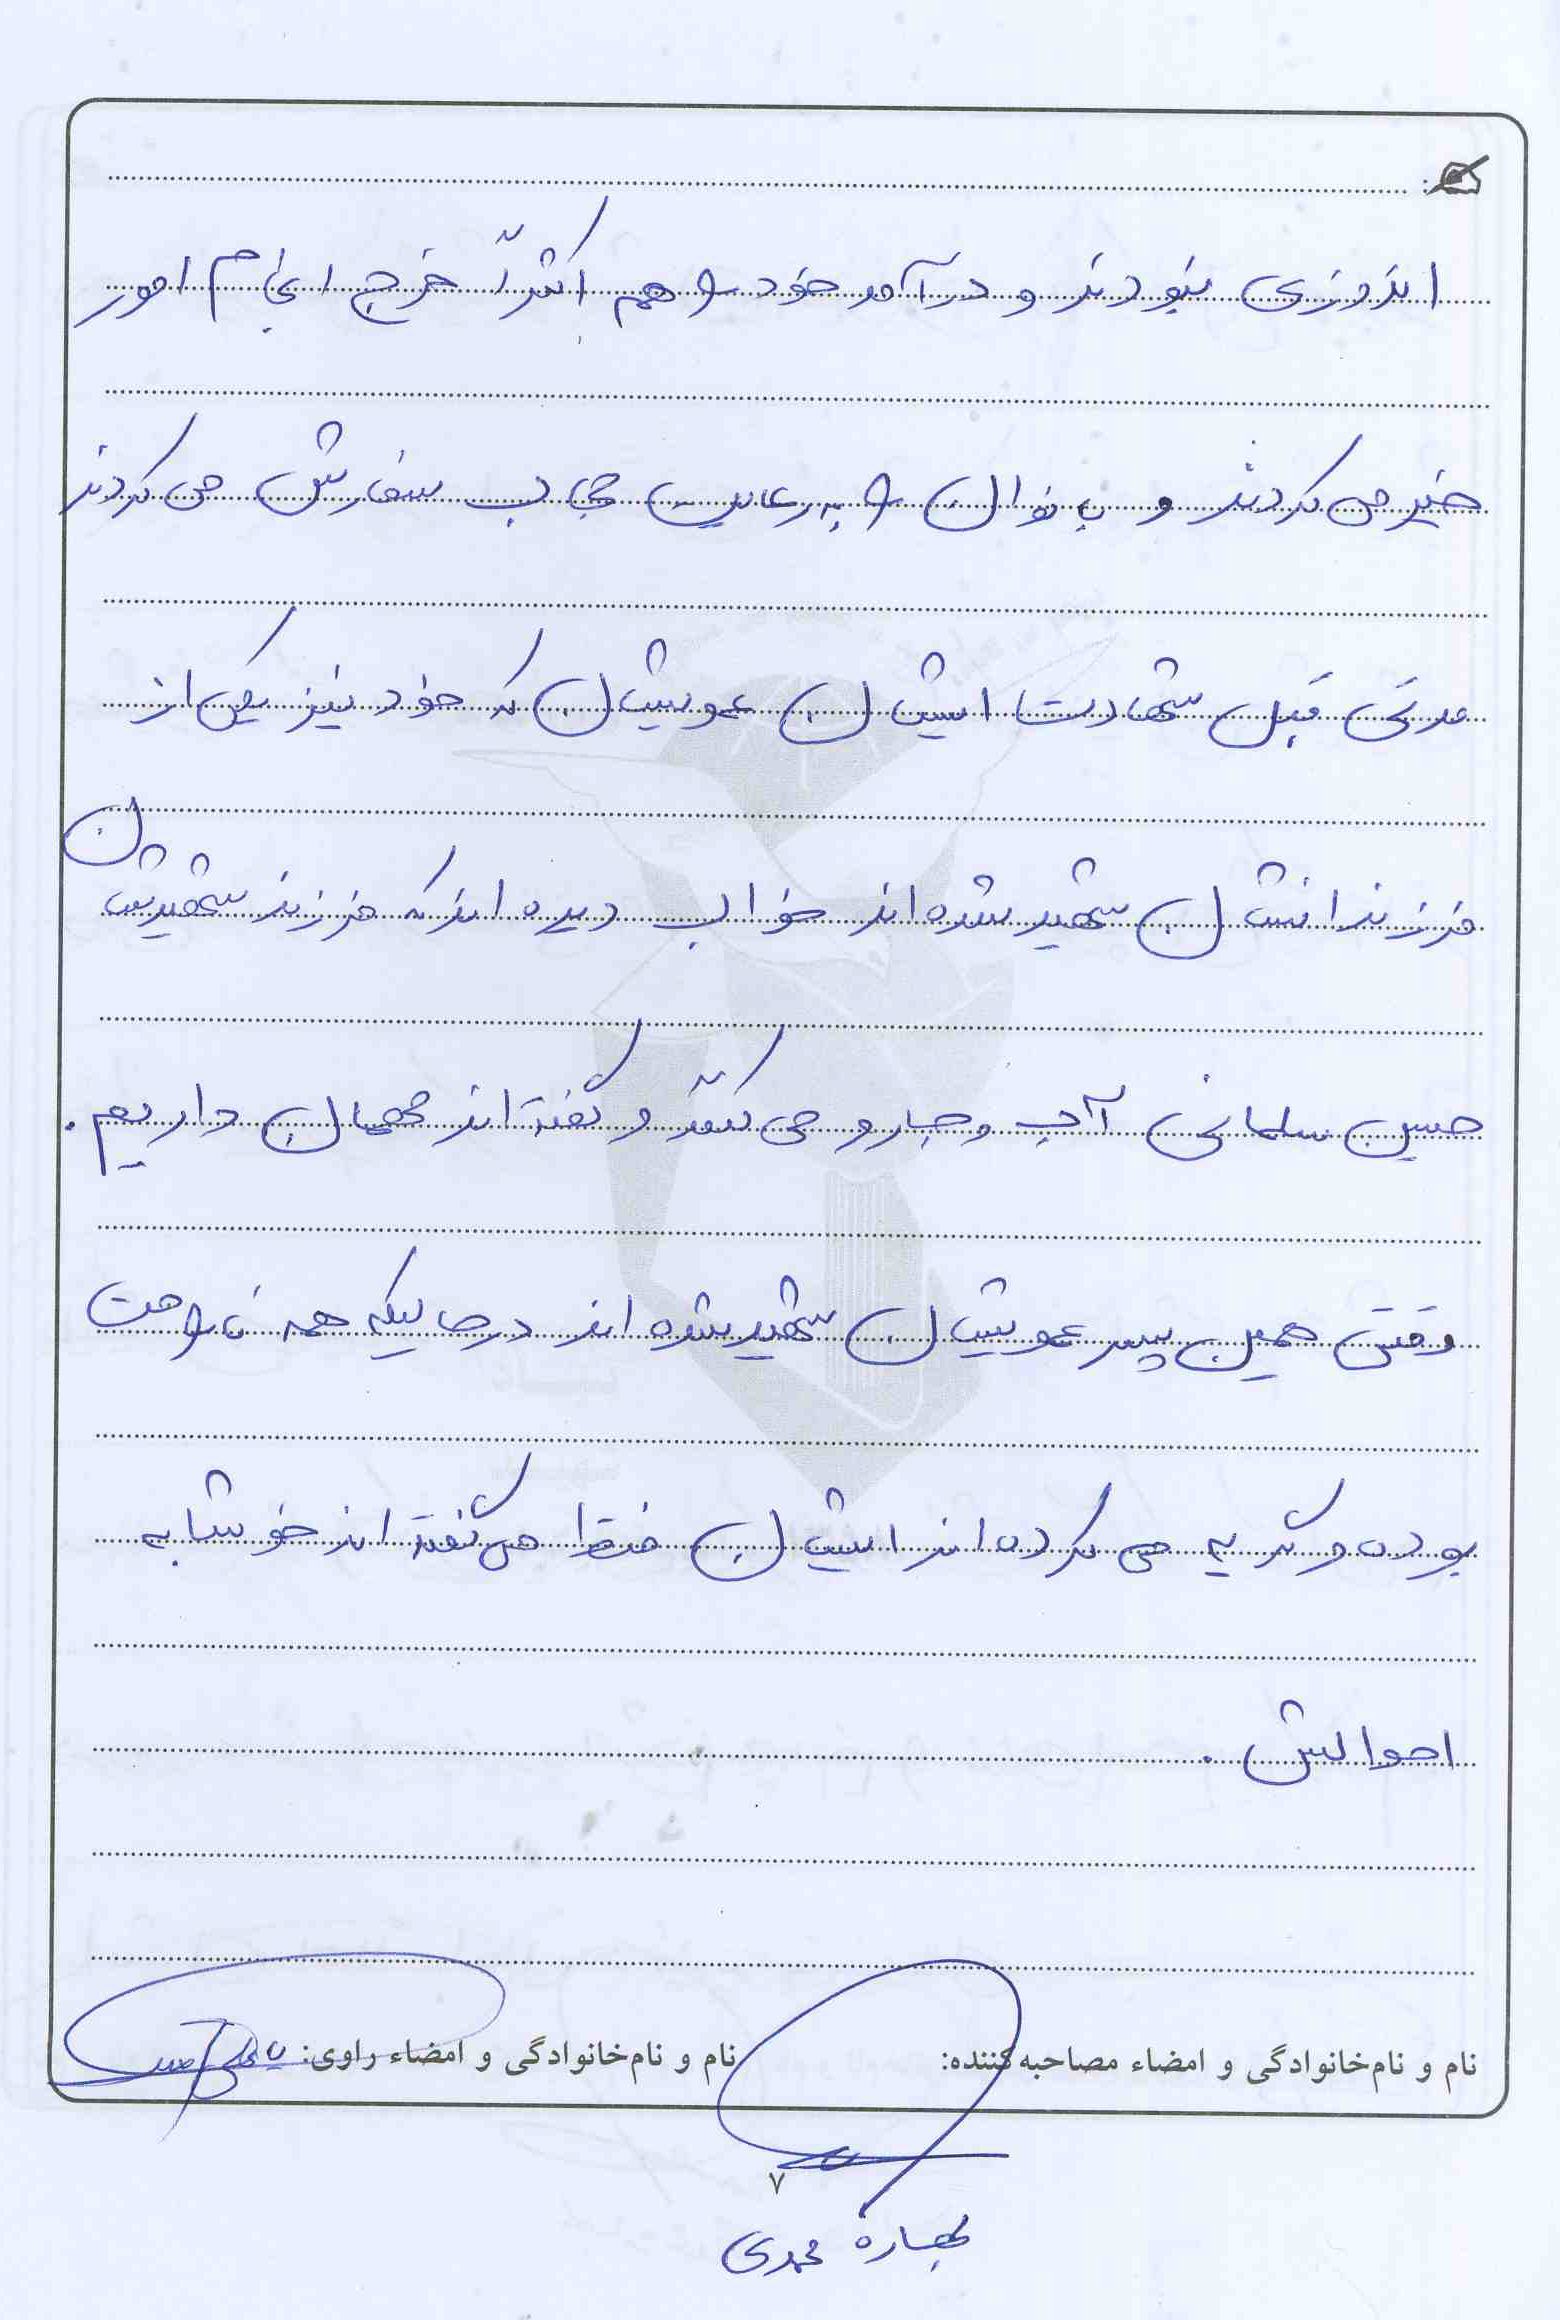 اندوزی نبودند و درآمد خود را هم اکثراً خرج انجام امور
خیر می کردند و بانوان را به رعایت حجاب سفارش می کردند
مدتی قبل شهادت ایشان عمویشان که خود نیز یکی از
فرزندانشان شهید شده اند خواب دیده اند که فرزند شهیدشان
حسین سلمانی آب و جارو می کنند و گفته اند مهمان داریم .
وقتی همین پسر عمویشان شهید شده اند درحالیکه همه ناراحت
بوده و گریه می کرده اند ایشان فقط می گفته اند خوشا به
احوالش .
نام و نام‌خانوادگی و امضاء مصاحبه‌کننده: نام و نام‌خانوادگی و امضاء راوی:
۷
بهاره محمدی